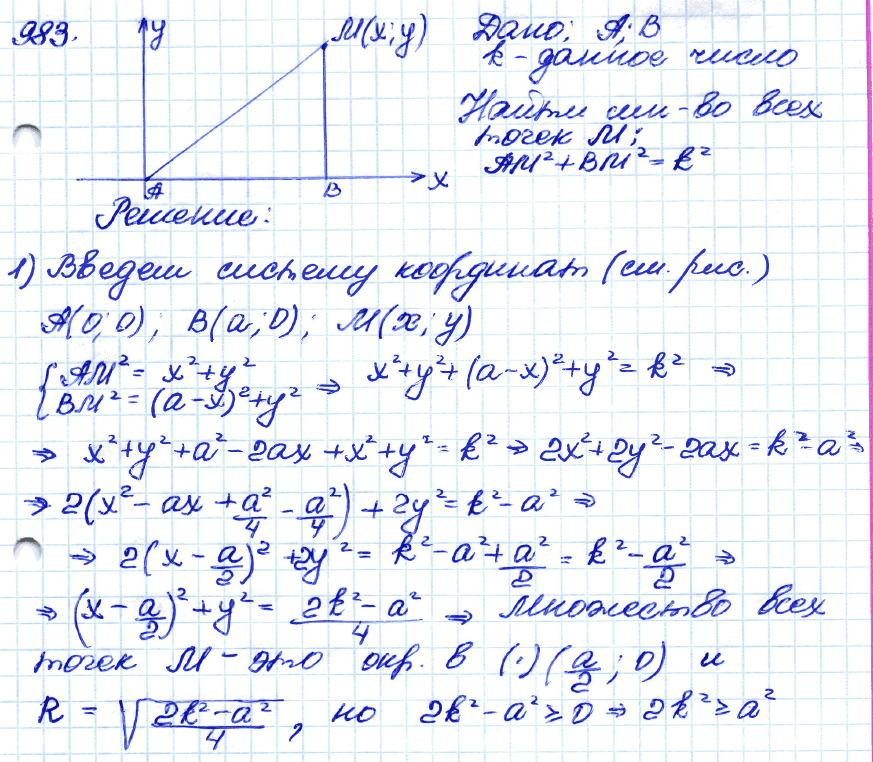 983.
y
M(x;y)
x
A
B
Дано: A; B
k - данное число
Найти мн-во всех
точек M:
AM² + BM² = k²
Решение:
1) Введем систему координат (см. рис.)
A(0;0); B(a;0); M(x;y)
{ AM² = x²+y²
BM² = (a-x)²+y² ⇒ x²+y²+(a-x)²+y² = k² ⇒
⇒ x²+y²+a²-2ax+x²+y² = k² ⇒ 2x²+2y²-2ax = k²-a² ⇒
⇒ 2(x² - ax + a²/4 - a²/4) + 2y² = k² - a² ⇒
⇒ 2(x - a/2)² + 2y² = k² - a² + a²/2 = k² - a²/2 ⇒
⇒ (x - a/2)² + y² = (2k² - a²)/4 ⇒ Множество всех
точек M - это окр. в (·) (a/2; 0) и
R = √((2k²-a²)/4), но 2k²-a² ≥ 0 ⇒ 2k² ≥ a²